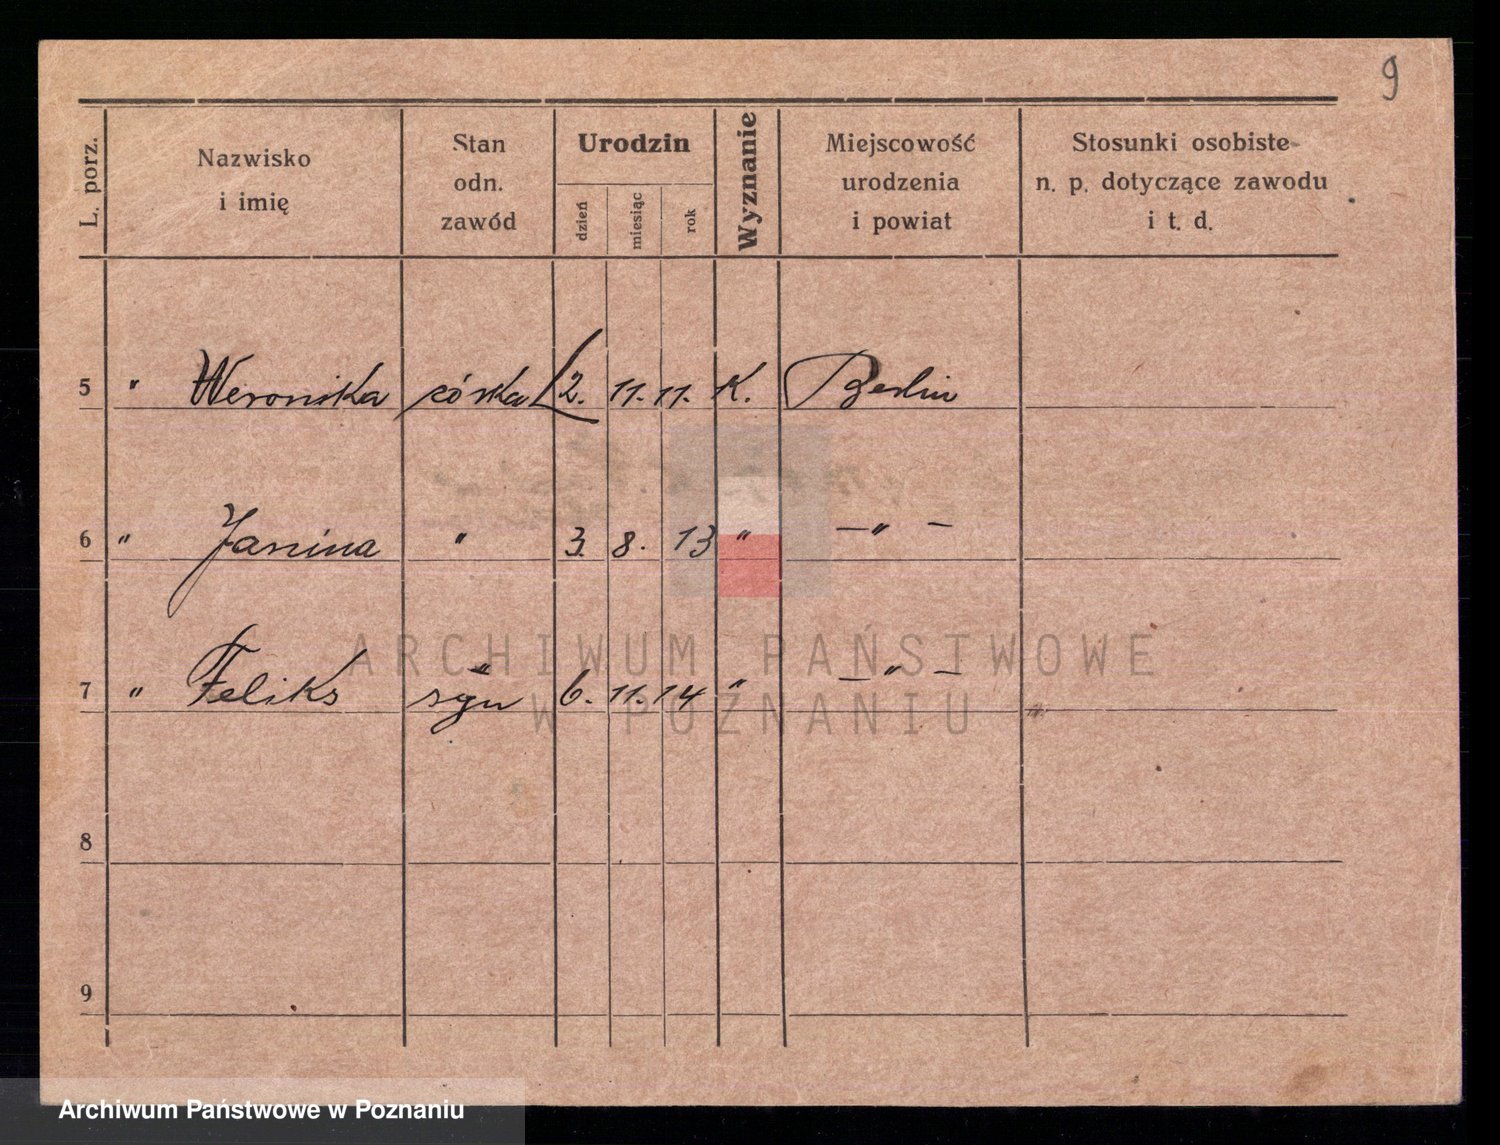 9
L. porz.
Nazwisko
i imię
Stan
odn.
zawód
Urodzin
dzień
miesiąc
rok
Wyznanie
Miejscowość
urodzenia
i powiat
Stosunki osobiste
n. p. dotyczące zawodu
i t. d.
5 " Weronika córka 2. 11. 11. K. Berlin
6 " Janina " 3. 8. 13 " — " —
7 " Feliks syn 6. 11. 14 " — " —
8
9
ARCHIWUM PAŃSTWOWE
W POZNANIU
Archiwum Państwowe w Poznaniu